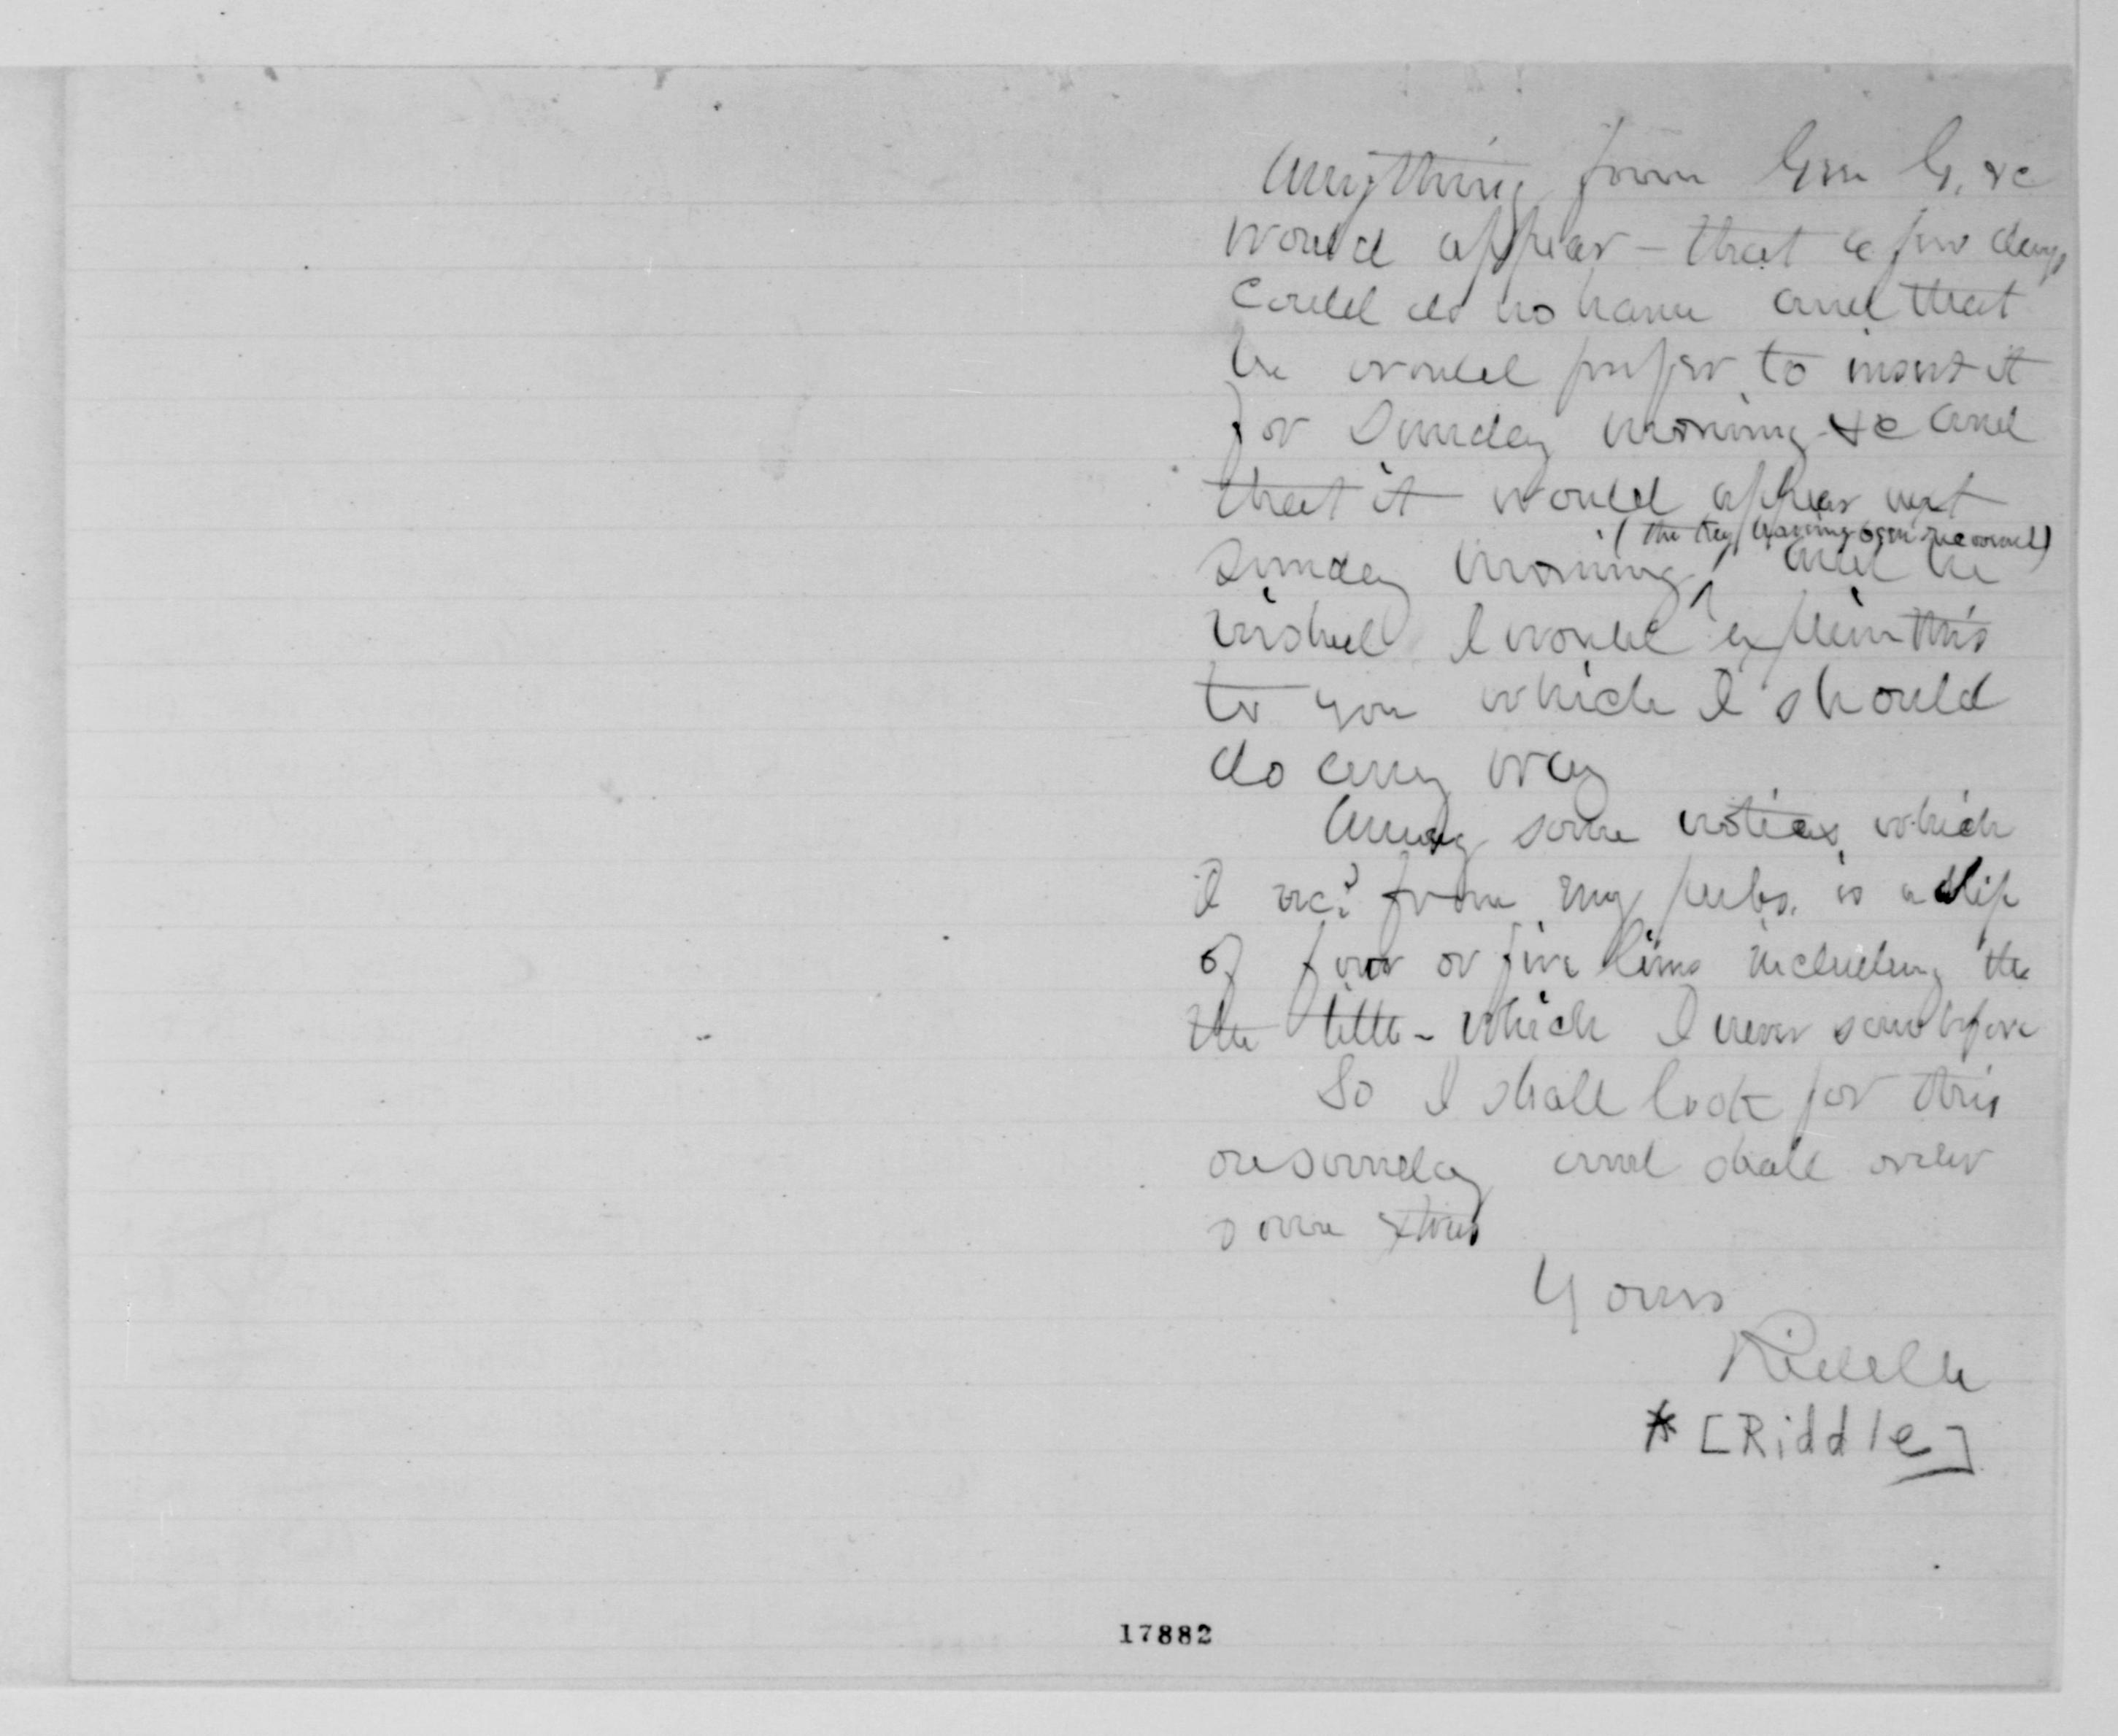 Anything from Gen G. &c
would appear – that a few days
could do no harm and that
he would prefer to insert it
for Sunday morning &c and
that it would appear next
(the Key having been recovered)
Sunday morning ^ and he
wished I would explain this
to you which I should
do any way
Among some notices which
I recd from my pubs. is a slip
of four or five lines including the
the title – which I never saw before
So I shall look for this
on Sunday and shall order
some extras
Yours
Riddle
* [Riddle]
17882